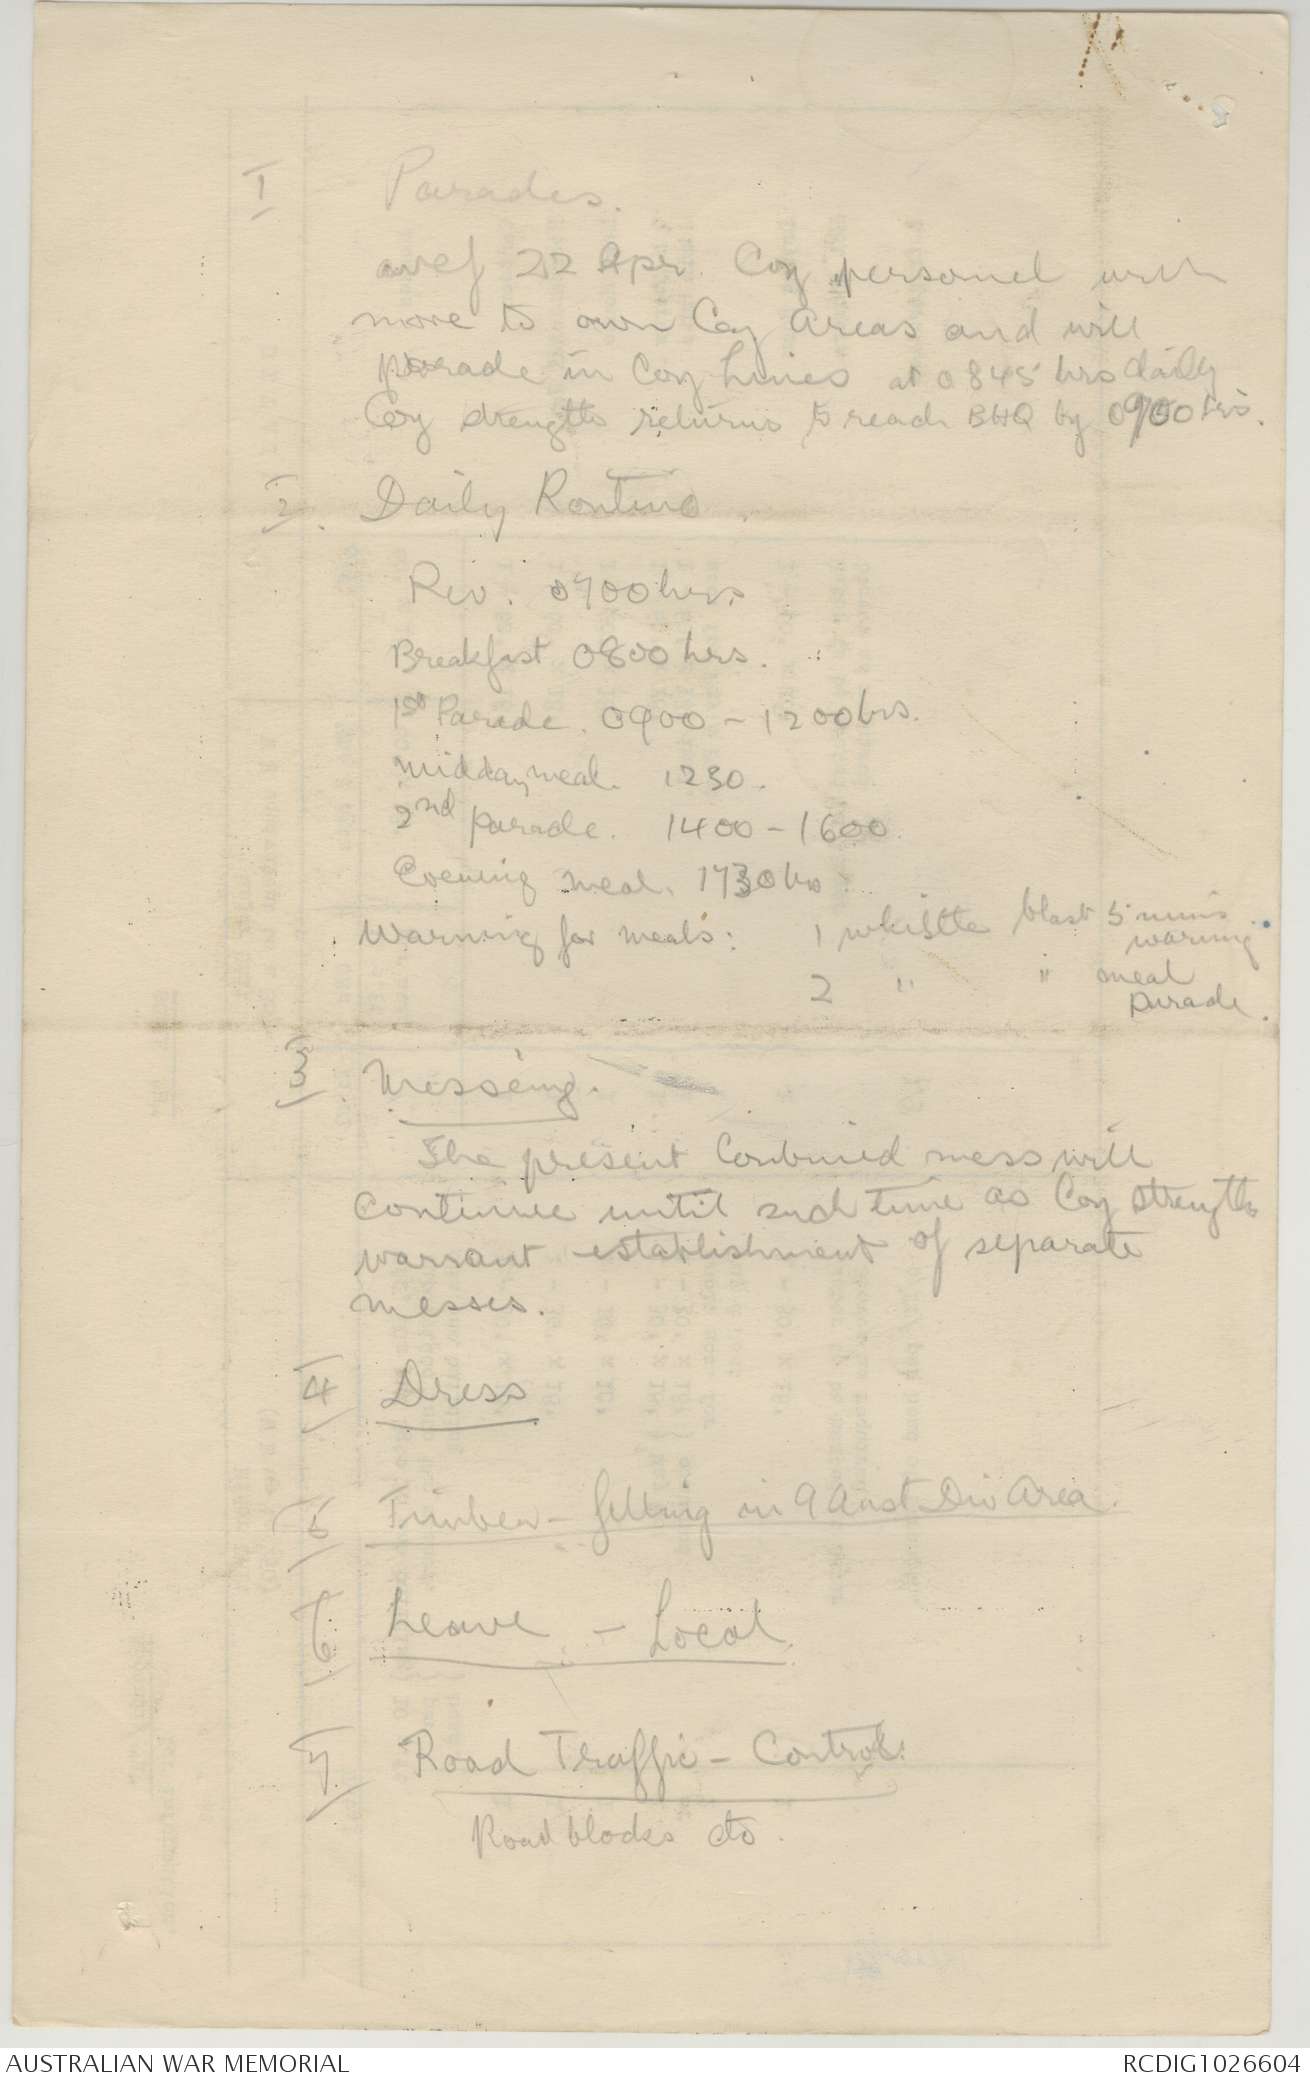 1 Parades.
awef 22 Apr. Coy personel will
move to own Coy areas and will
parade in Coy Lines at 0845 hrs daily
Coy strengths returns to reach BHQ by 0900 hrs.
2. Daily Routine.
Rev. 0700 hrs.
Breakfast 0800 hrs.
1st Parade. 0900 - 1200 hrs.
Midday meal. 1230.
2nd parade. 1400 - 1600.
Evening meal. 1730 hrs
Warning for meals: 1 whistle blast 5 mins
warning
2 " " meal
parade.
3) Messing.
The present Combined mess will
continue until such time as Coy strengths
warrant establishment of separate
messes.
4 Dress
5 Timber - felling in 9 Aust Div Area.
6 Leave - Local.
7 Road Traffic - Control.
Road blocks etc.
AUSTRALIAN WAR MEMORIAL
RCDIG1026604